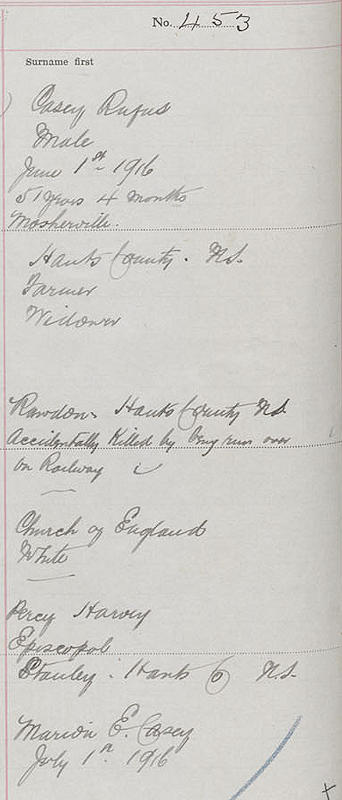 No. 453
Surname first
Casey Rufus
Male
June 1st 1916
51 years 4 months
Mosherville.
Hants County. N.S.
Farmer
Widower
Rawdon Hants County N.S.
Accidentally Killed by being run over
on Railway
Church of England
White
Percy Harvey
Episcopal
Stanley. Hants Co N.S.
Marion E. Casey
July 1st 1916